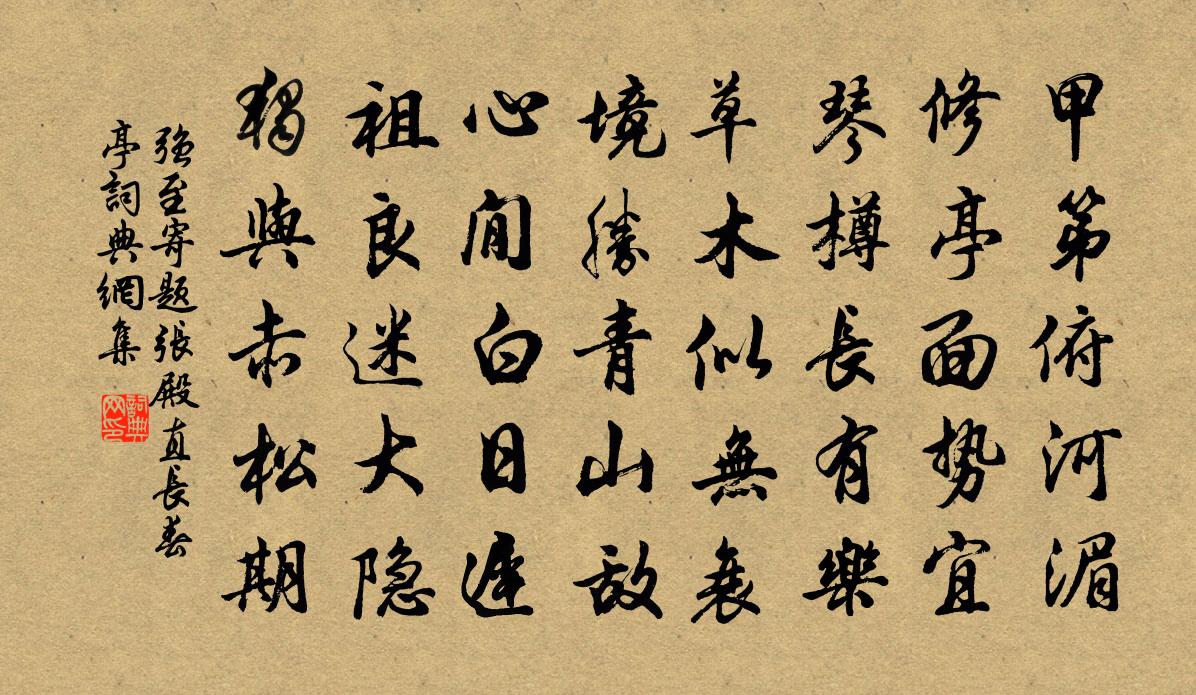 甲第俯河湄
修亭面勢宜
琴樽長有樂
草木似無衰
境勝青山敌
心閒白日遲
祖良迷大隐
獨與赤松期
強至寄題張殿直長春
亭詞典網集
詞典
网印